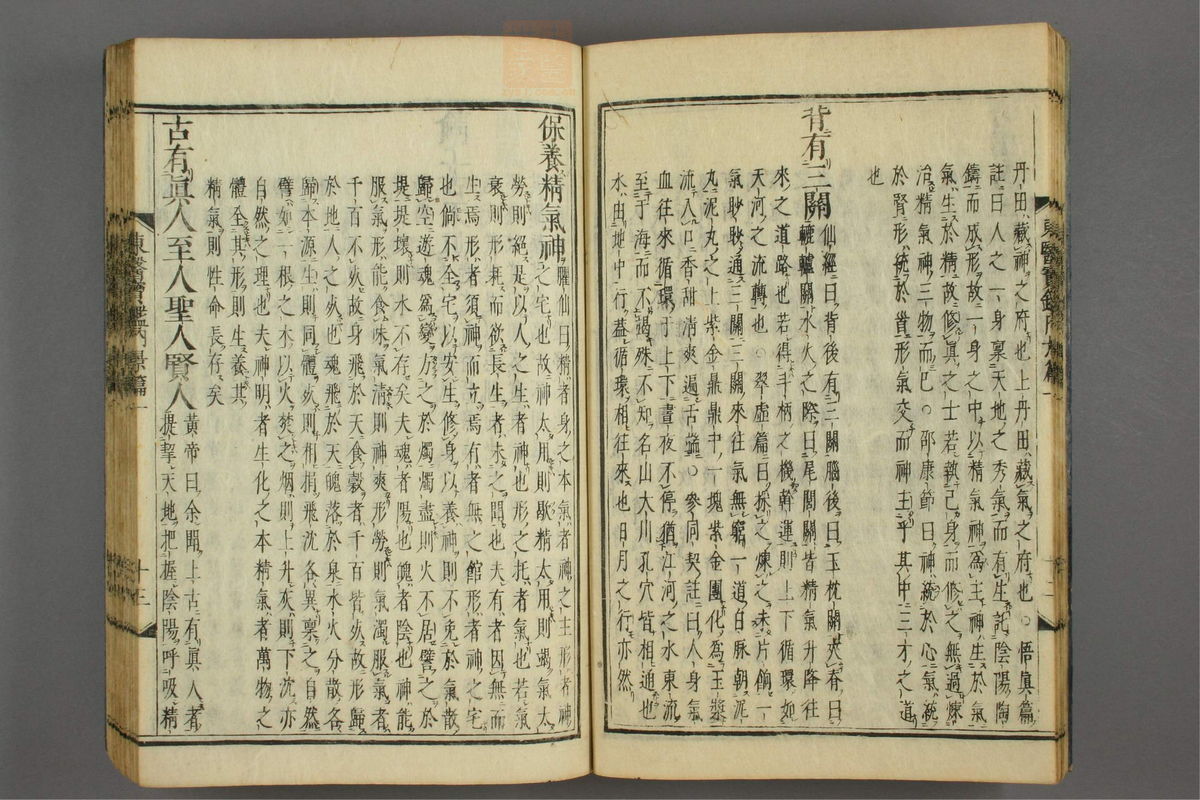 丹田藏神之府也上丹田藏氣之府也○悟眞篇
註曰人之一身稟天地之秀氣而有生託陰陽陶
鑄而成形故一身之中以精氣神爲主神生於氣
氣生於精故修眞之士若執己身而修之無過煉
治精氣神三物而已○邵康節曰神統於心氣統
於腎形統於首形氣交而神主乎其中三才之道
也
背有三關 仙經曰背後有三關腦後曰玉枕關夾脊曰
轆轤關水火之際曰尾閭關皆精氣升降往
來之道路也若得斗柄之機斡運則上下循環如
天河之流轉也○翠虛篇曰採之煉之未片餉一
氣眇眇通三關三關來往氣無窮一道白脉朝泥
丸泥丸之上紫金鼎鼎中一塊紫金團化爲玉漿
流入口香甜淸爽遍舌端○參同契註曰人身氣
血往來循環于上下晝夜不停猶江河之水東流
至于海而不竭殊不知名山大川孔穴皆相通也
水由地中行葢循環相往來也日月之行亦然
保養精氣神 臞仙曰精者身之本氣者神之主形者神
之宅也故神太用則歇精太用則竭氣太
勞則絕是以人之生者神也形之托者氣也若氣
衰則形耗而欲長生者未之聞也夫有者因無而
生焉形者須神而立焉有者無之館形者神之宅
也倘不全宅以安生修身以養神則不免於氣散
歸空遊魂爲變方之於燭燭盡則火不居譬之於
堤堤壞則水不存矣夫魂者陽也魄者陰也神能
服氣形能食味氣淸則神爽形勞則氣濁服氣者
千百不死故身飛於天食穀者千百皆死故形歸
於地人之死也魂飛於天魄落於泉水火分散各
歸本源生則同體死則相捐飛沈各異稟之自然
譬如一根之木以火焚之烟則上升灰則下沈亦
自然之理也夫神明者生化之本精氣者萬物之
體全其形則生養其
精氣則性命長存矣
古有眞人至人聖人賢人 黃帝曰余聞上古有眞人者
提挈天地把握陰陽呼吸精
東醫寶鑑內景篇一
十三